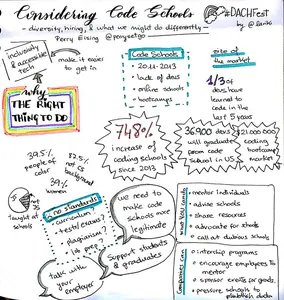 Considering Code Schools
- diversity, hiring, & what we might do differently -
Perry Eising @perryetgo
#DACHFest
inclusivity
& accessible
tech
make it easier
to get in
why
THE RIGHT
THING TO DO
Code Schools
• 2011-2013
• lack of devs
• online schools
• bootcamps
state of
the market
1/3 of
devs have
learned to
code in the
last 5 years
748%
increase of
coding schools
since 2013
36.900 devs
will graduate
from code
school in US
$21.000.000
coding
bootcamp
market
39.5%
people of
color
87.5%
not CS
background
39%
women
Taught at
schools
no standards
curriculum?
tests/exams?
plagiarism?
job prep?
we need to
make code
schools more
legitimate
Support students
& graduates
talk with
your
employer
• mentor individuals
• advise schools
• share resources
• advocate for studs
• call out dubious schools
companies can
• internship programs
• encourage employees to
mentor
• sponsor events for grads
• pressure schools to